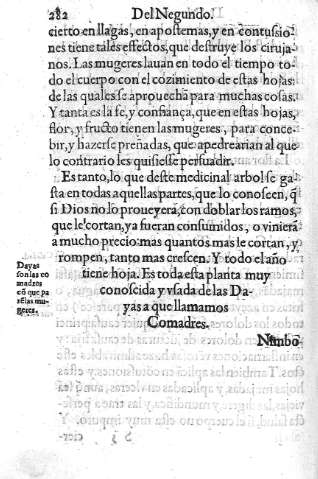 282 Del Negundo.
cierto en llagas, en apostemas, y en contussio
nes tiene tales effectos, que destruye los ciruja
nos. Las mugeres lauan en todo el tiempo to
do el cuerpo con el cozimiento de estas hojas:
de las quales se aprouechã para muchas cosas.
Y tanta es la fe, y confiança, que en estas hojas,
flor, y fructo tienen las mugeres, para conce-
bir, y hazerse preñadas, que apedrearian al que
lo contrario les quisiesse persuadir.
Es tanto, lo que deste medicinal arbol se ga
sta en todas aquellas partes, que lo conoscẽ, q̃
si Dios no lo proueyera, con doblar los ramos,
que le cortan, ya fueran consumidos, o vinierã
a mucho precio: mas quantos mas le cortan, y
rompen, tanto mas crescen. Y todo el año
tiene hoja. Es toda esta planta muy
conoscida y vsada de las Da-
yas a que llamamos
Comadres.
Dayas
son las co
madres
cõ que pa
rẽ las mu-
geres.
Nimbo